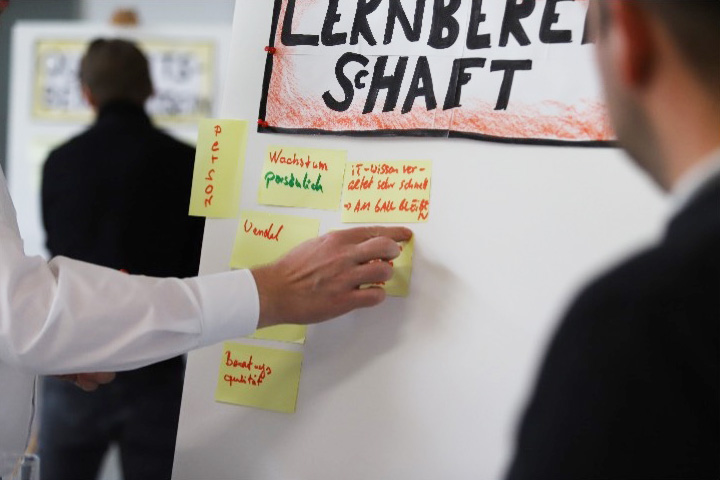 LERNBEREI
SCHAFT
Wachstum
persönlich
IT-Wissen ver-
altet sehr schnell
→ AM BALL BLEIBE
N
Wandel
Beratungs
qualität